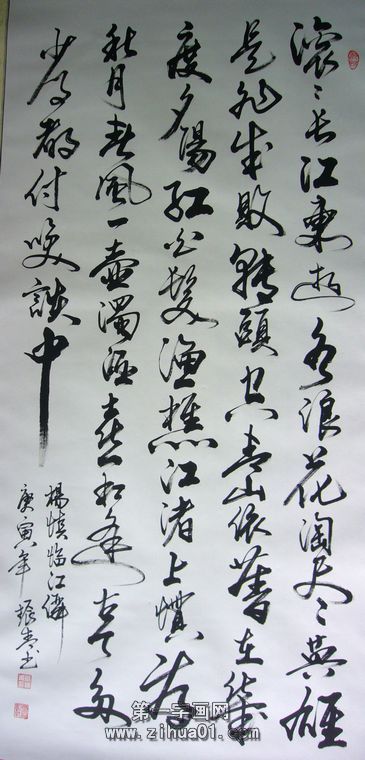 滚〻长江東逝水浪花淘尽〻英雄
是非成敗轉頭空青山依舊在幾
度夕陽红白髮漁樵江渚上慣看
秋月春風一壺濁酒喜相逢古今多
少事都付笑談中
楊慎临江僊
庚寅年 书
第一字画网
www.zihua01.com